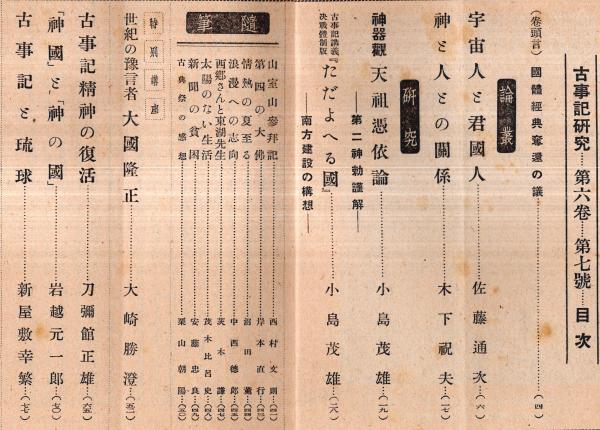 古事記研究……第六卷……第七號……目次
(卷頭言) 國體經典奪還の議……(四)
論叢
宇宙人と君國人……佐藤通次…(六)
神と人との關係……木下祝夫…(一七)
研究
神器觀 天祖憑依論……小島茂雄…(一九)
―第二神勅謹解―
古事記講義 決戰體制版 『たゞよへる國』……小島茂雄…(二八)
―南方建設の構想―
隨筆
山室山參拜記……西村文則…(四一)
第四の大佛……岸本直行…(四三)
情熱の夏至る……沼田薫…(四四)
浪漫への志向……中西德郎…(四五)
西郷さんと東湖先生……茨木謙…(四七)
太陽のない生活……茂木比呂史…(四八)
新聞の貧困……安藤忠良…(四九)
古典祭の感想……栗山朝陽…(五〇)
特別講座
世紀の豫言者 大國隆正……大崎勝澄…(五一)
古事記精神の復活……刀彌館正雄…(六五)
「神國」と「神の國」……岩越元一郎…(七五)
古事記と琉球……新屋敷幸繁…(七七)